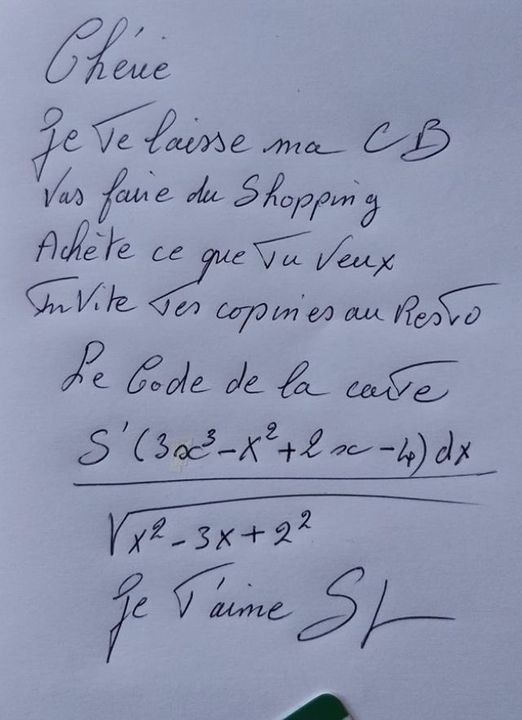 Chérie
Je Te laisse ma CB
Vas faire du Shopping
Achète ce que Tu Veux
InVite Tes copines au Resto
Le Code de la carte
S' (3x³-x²+2x-4) dx
√x²-3x+2²
Je T'aime SL